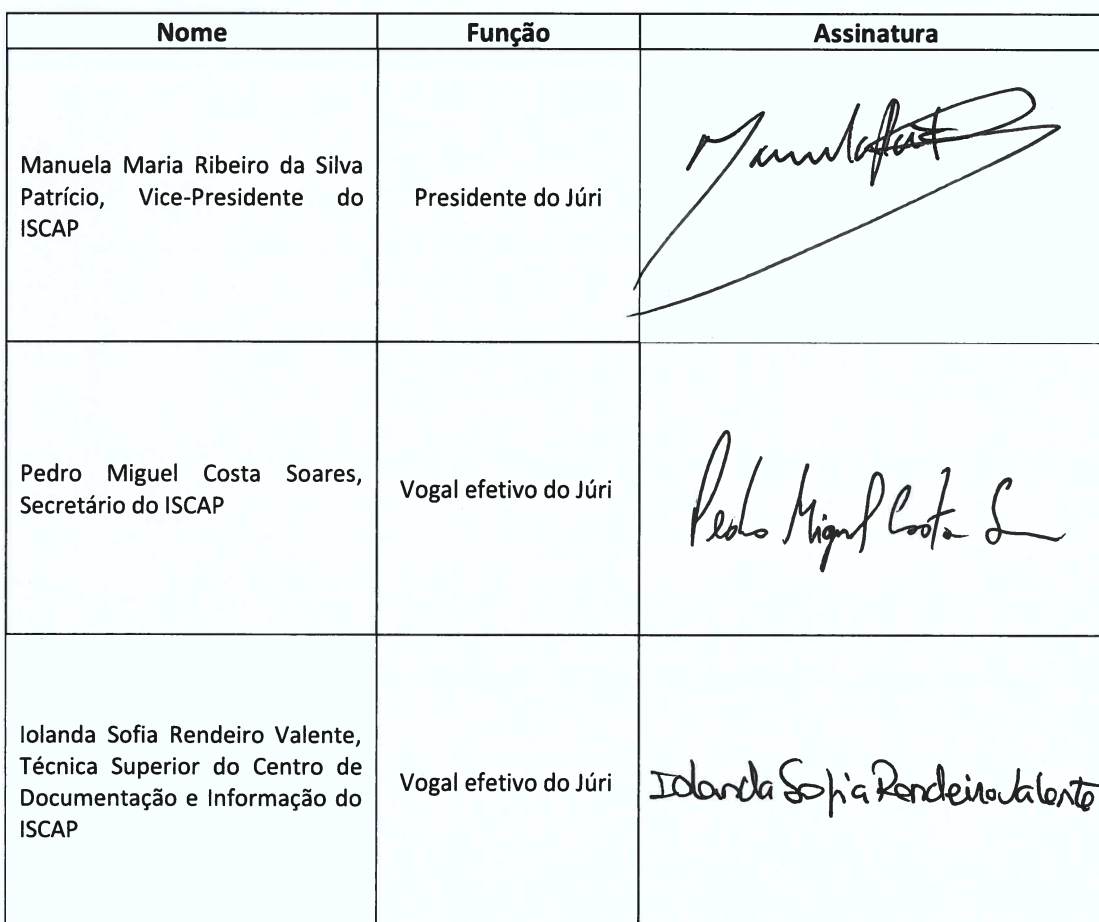 Nome Função Assinatura
Manuela Maria Ribeiro da Silva
Patrício, Vice-Presidente do
ISCAP
Presidente do Júri
Pedro Miguel Costa Soares,
Secretário do ISCAP
Vogal efetivo do Júri
Pedro Miguel Costa
Iolanda Sofia Rendeiro Valente,
Técnica Superior do Centro de
Documentação e Informação do
ISCAP
Vogal efetivo do Júri
Iolanda Sofia Rendeiro Valente